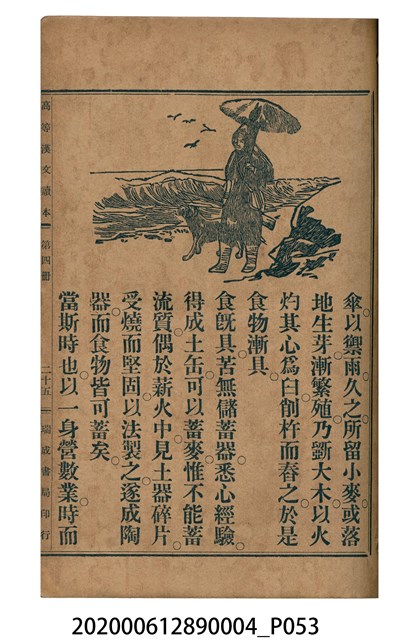 傘以禦雨久之所留小麥或落
地生芽漸繁殖乃斵大木以火
灼其心爲臼創杵而舂之於是
食物漸具
食旣具苦無儲蓄器悉心經驗
得成土缶可以蓄麥惟不能蓄
流質偶於薪火中見土器碎片
受燒而堅固以法製之遂成陶
器而食物皆可蓄矣
當斯時也以一身營數業時而
高等漢文讀本 第四冊 二十五 瑞成書局印行
202000612890004_P053